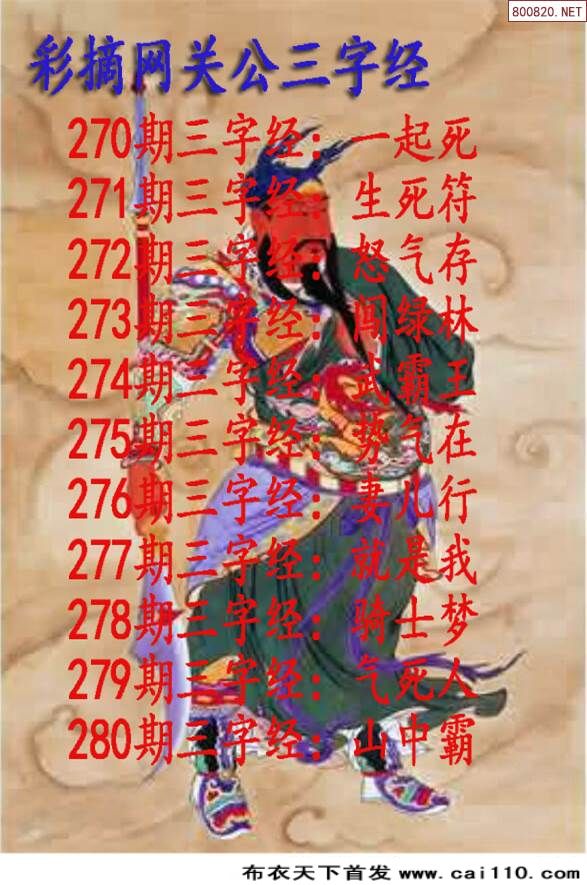 800820.NET
彩摘网关公三字经
270期三字经：一起死
271期三字经：生死符
272期三字经：怒气存
273期三字经：闯绿林
274期三字经：武霸王
275期三字经：势气在
276期三字经：妻儿行
277期三字经：就是我
278期三字经：骑士梦
279期三字经：气死人
280期三字经：山中霸
布衣天下首发 www.cai110.com